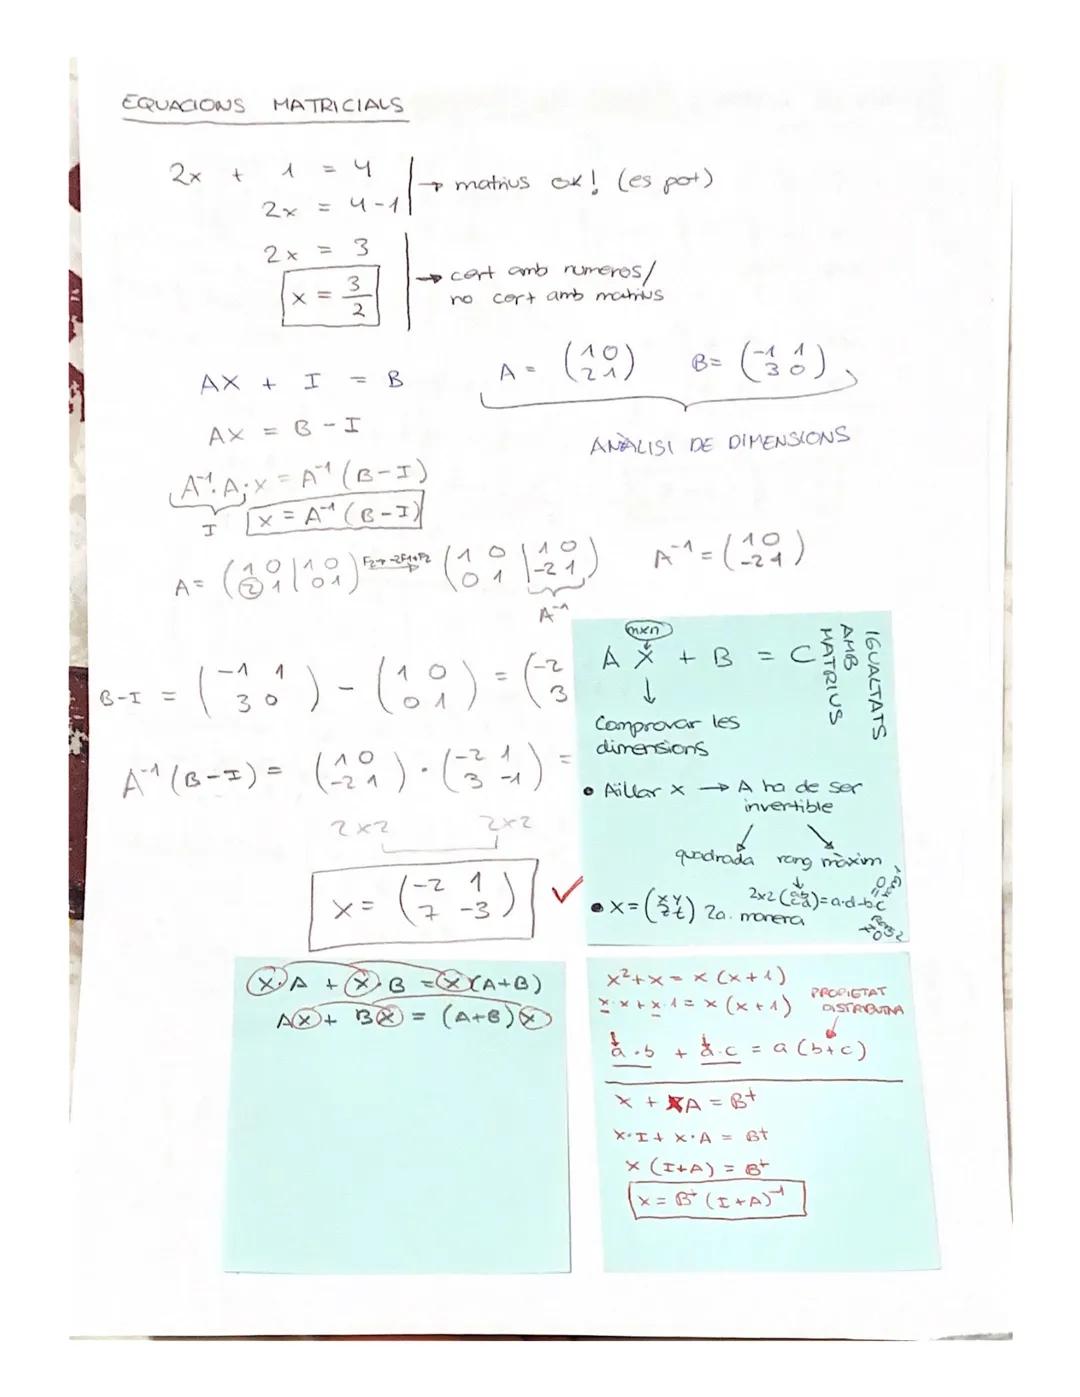 EQUACIONS MATRICIALS
2x + 1 = 4
2x = 4-1
→ matrius ok! (es pot)
2x = 3
x = 3/2
→ cert amb numeros/
no cert amb matrius
AX + I = B
A = (1 0 / 2 1) B = (-1 1 / 3 0)
AX = B - I
ANÀLISI DE DIMENSIONS
A⁻¹·A·X = A⁻¹(B-I)
I
x = A⁻¹(B-I)
A = (1 0 | 1 0 / 2 1 | 0 1) F2→-2F1+F2 (1 0 | 1 0 / 0 1 | -2 1) A⁻¹ = (1 0 / -2 1)
A⁻¹
B-I = (-1 1 / 3 0) - (1 0 / 0 1) = (-2 / 3
A⁻¹(B-I) = (1 0 / -2 1) · (-2 1 / 3 -1) =
2x2 2x2
x = (-2 1 / 7 -3) ✓
IGUALTATS
AMB
MATRIUS
mxn
A X + B = C
↓
Comprovar les
dimensions
• Aïllar x → A ha de ser
invertible
quadrada rang màxim
2x2 (a b / c d) = a·d-b·c
• x = (x y / z t) 2a. manera
X·A + X·B = X(A+B)
AX + BX = (A+B)X
x²+x = x(x+1)
x·x+x·1 = x(x+1)
PROPIETAT
DISTRIBUTIVA
a·b + a·c = a(b+c)
x + XA = Bt
x·I + x·A = Bt
x(I+A) = Bt
x = Bt(I+A)⁻¹